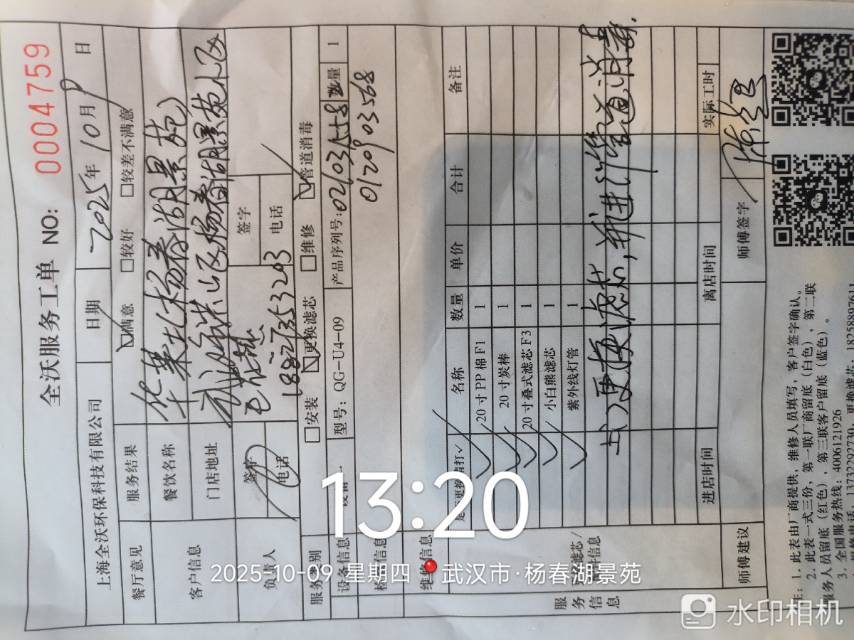 全沃服务工单 NO: 0004759
上海全沃环保科技有限公司 日期 2025年10月9日
餐厅意见 服务结果 ☑满意 □较好 □较差不满意
客户信息 餐饮名称 华莱士(杨春湖景苑)
门店地址 武汉市洪山区杨春湖景苑小区
负责人 签字
电话 签字 电话
服务 别 □安装 ☑更换滤芯 □维修 ☑管道消毒
设备信息 型号: QG-U4-09 产品序列号: 数量 1
0170903568
维修信息
名称 数量 单价 合计 备注
✓ 20寸PP棉F1 1
✓ 20寸炭棒 1
✓ 20寸叠式滤芯F3 1
✓ 小白熊滤芯 1
✓ 紫外线灯管 1
服务信息
已更换滤芯,并进行管道消毒.
进店时间 离店时间 实际工时
师傅建议 师傅签字
注: 1、此表由厂商提供,维修人员填写,客户签字确认。
2、此表一式三份,第一联厂商留底(白色),第二联
服务人员留底(红色),第三联客户留底(蓝色)。
3、全国服务热线: 4006121926
13732292730, 更换滤芯: 18258897611
13:20
2025-10-09 星期四 武汉市·杨春湖景苑
水印相机